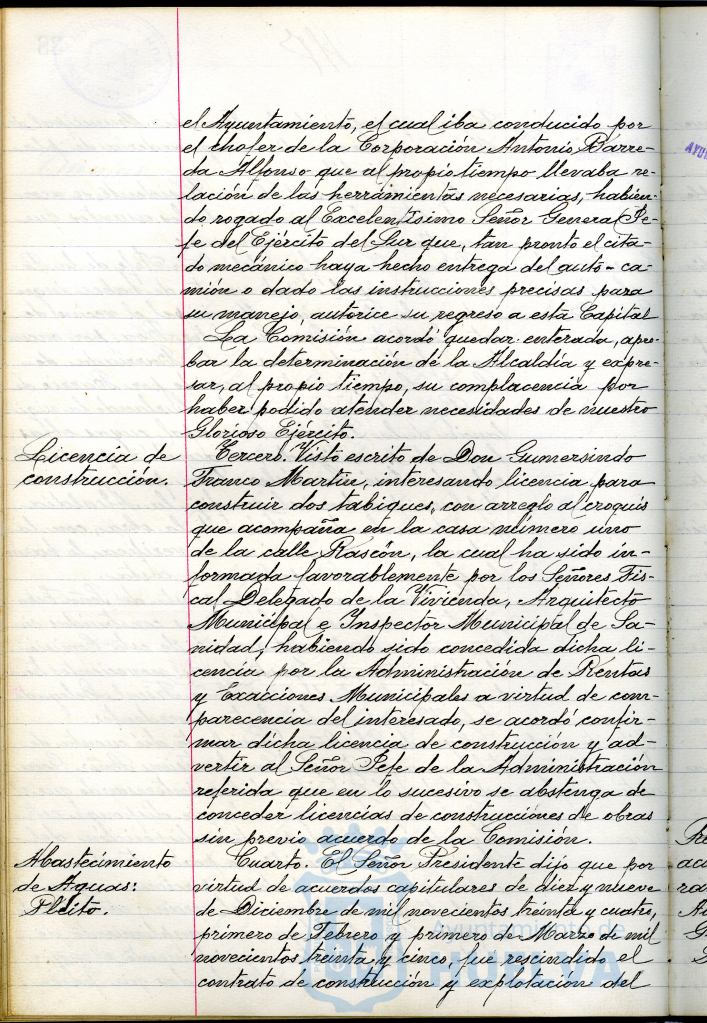 el Ayuntamiento, el cual iba conducido por
el chofer de la Corporación Antonio Barre-
da Alfonso que al propio tiempo llevaba re-
lación de las herramientas necesarias, habien-
do rogado al Excelentísimo Señor General Je-
fe del Ejército del Sur que, tan pronto el cita-
do mecánico haya hecho entrega del auto-ca-
mión o dado las instrucciones precisas para
su manejo, autorice su regreso a esta Capital
La Comisión acordó quedar enterada, apro-
bar la determinación de la Alcaldía y expre-
sar, al propio tiempo, su complacencia por
haber podido atender necesidades de nuestro
Glorioso Ejército.
Licencia de
construcción.
Tercero. Visto escrito de Don Gumersindo
Franco Martín, interesando licencia para
construir dos tabiques, con arreglo al croquis
que acompaña en la casa número uno
de la calle Rascón, la cual ha sido in-
formada favorablemente por los Señores Fis-
cal Delegado de la Vivienda, Arquitecto
Municipal e Inspector Municipal de Sa-
nidad, habiendo sido concedida dicha li-
cencia por la Administración de Rentas
y Exacciones Municipales a virtud de com-
parecencia del interesado, se acordó confir-
mar dicha licencia de construcción y ad-
vertir al Señor Jefe de la Administración
referida que en lo sucesivo se abstenga de
conceder licencias de construcciones de obras
sin previo acuerdo de la Comisión.
Abastecimiento
de Aguas:
Pleito.
Cuarto. El Señor Presidente dijo que por
virtud de acuerdos capitulares de diez y nueve
de Diciembre de mil novecientos treinta y cuatro,
primero de Febrero y primero de Marzo de mil
novecientos treinta y cinco, fue rescindido el
contrato de construcción y explotación del
Ayuntamiento de
HUELVA